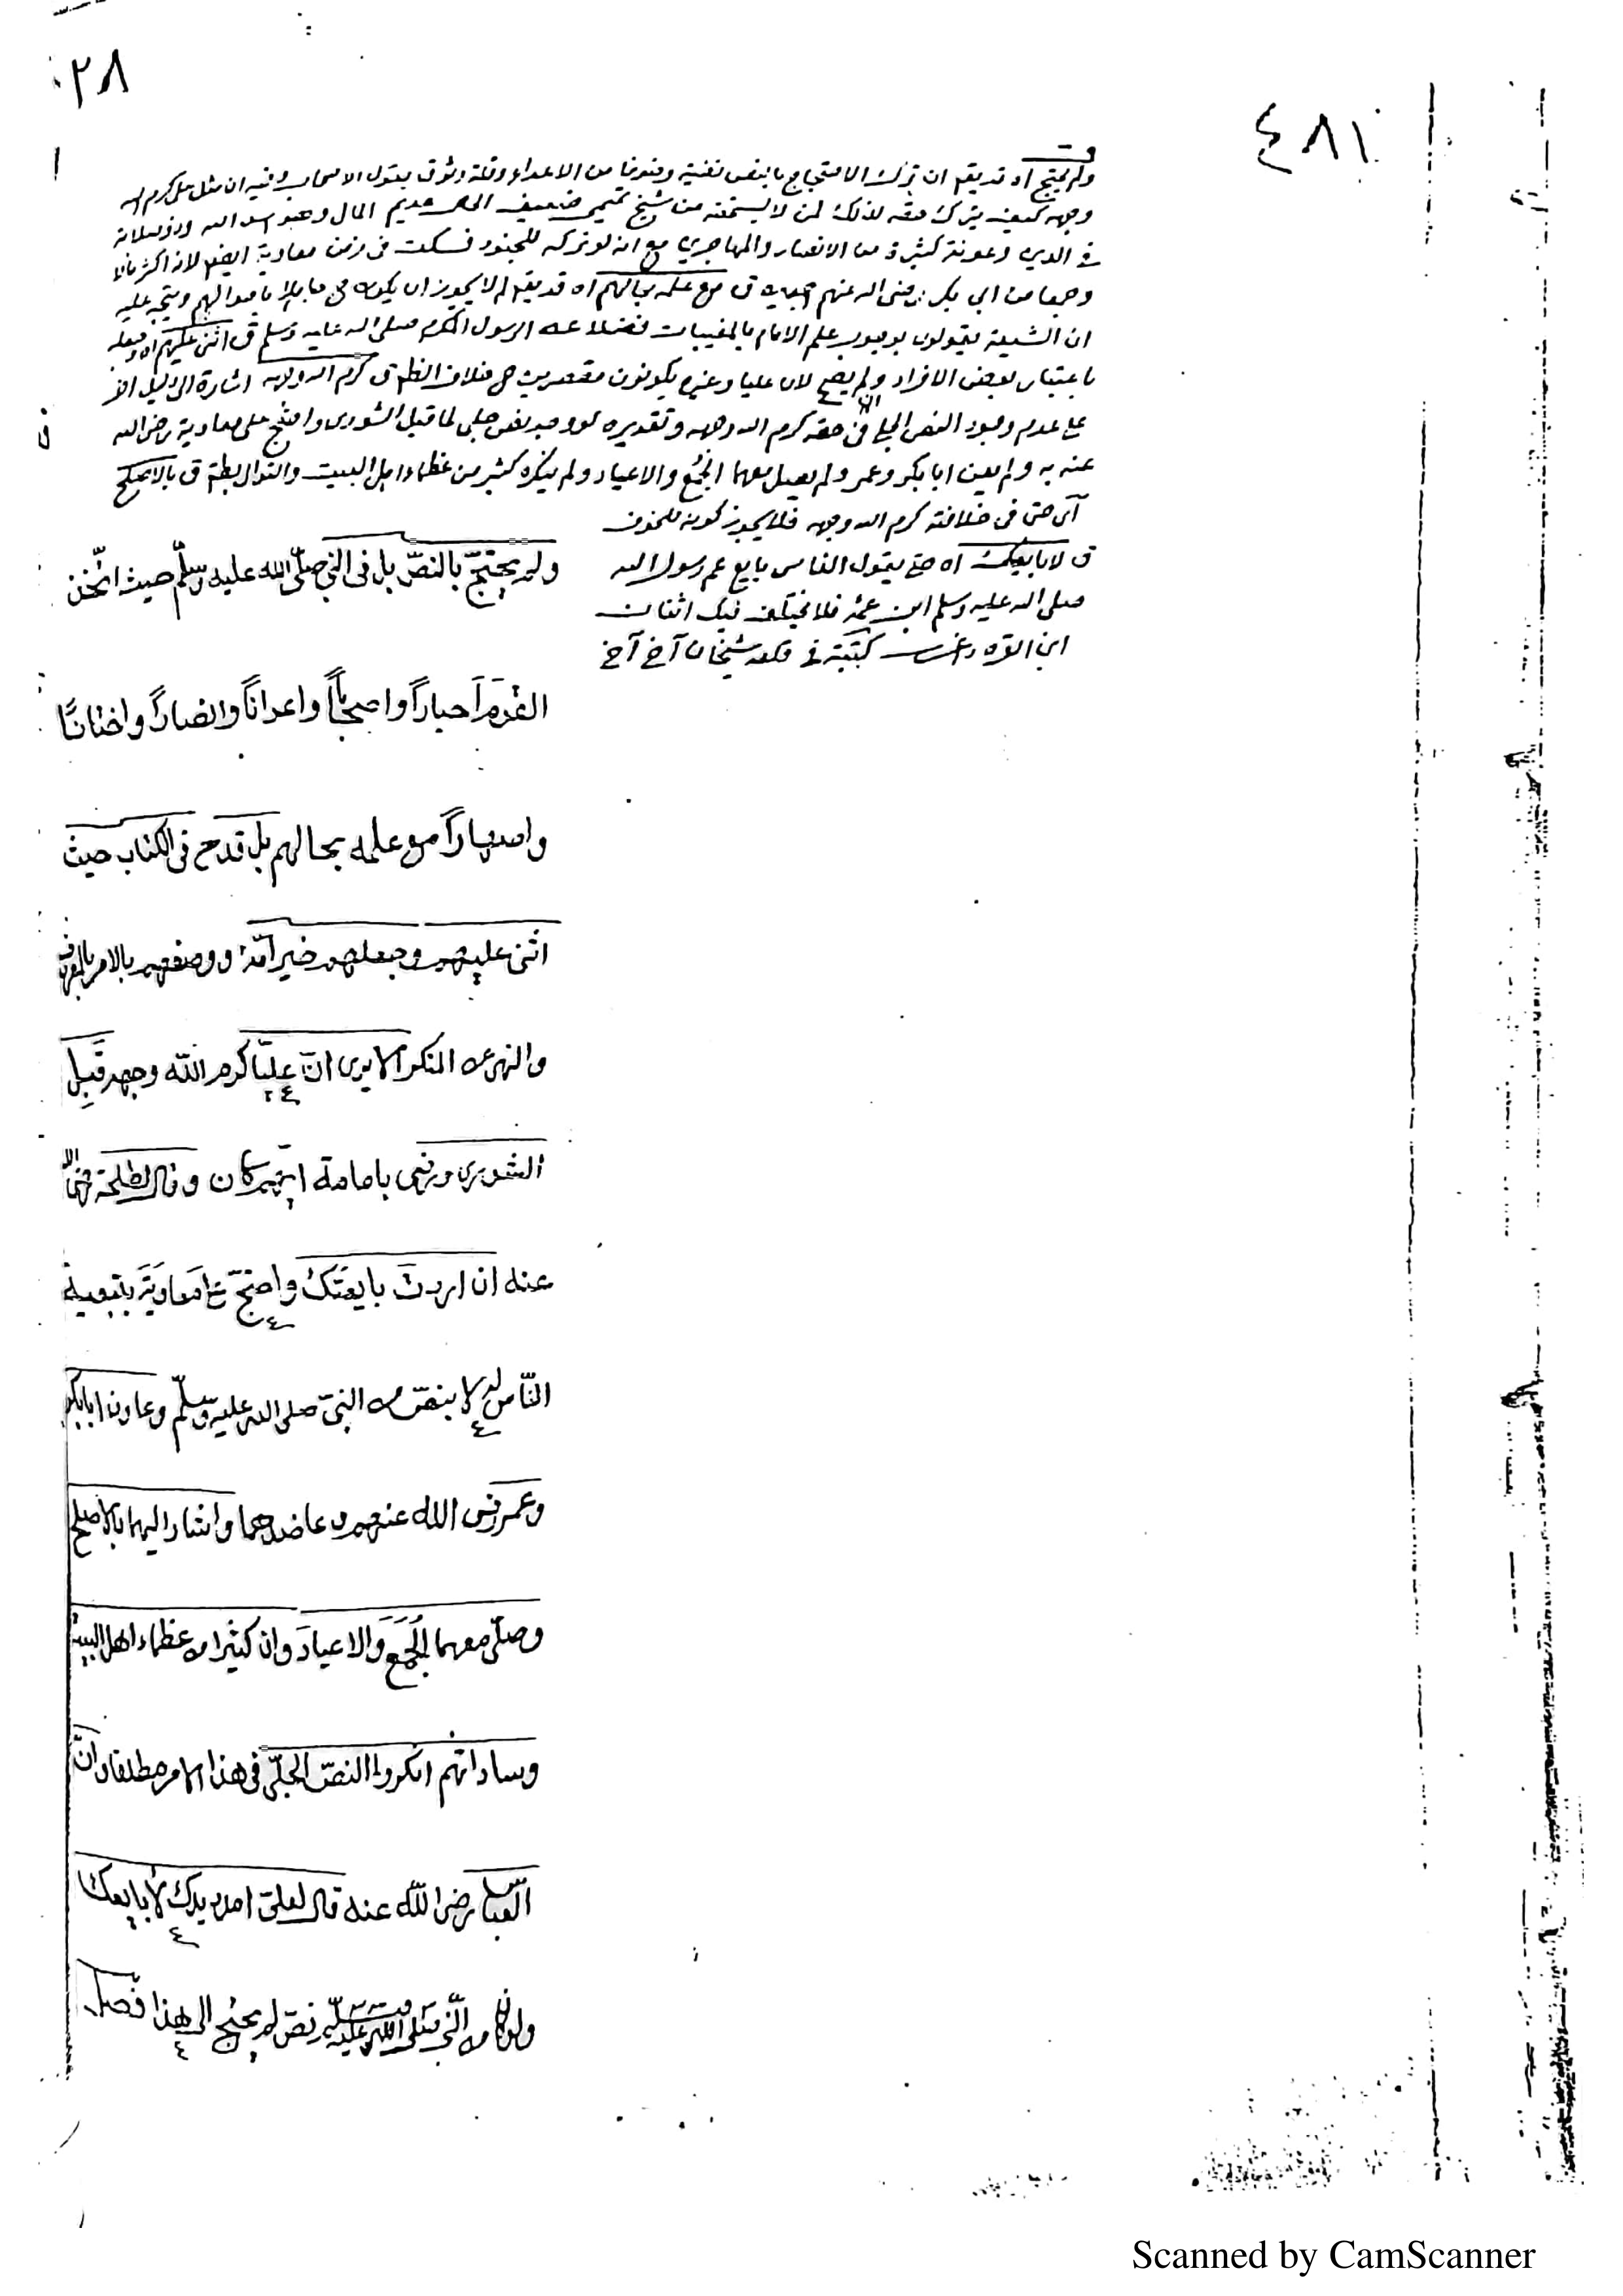 ٢٨
٤٨١
ولم يحتج اه قد يقم ان ترك الاحتجاج بالنص تقية وخوفا من الاعداء وقلة وثوق بقول الاصحاب وفيه ان مثل على كرم الله
وجهه كيف يترك حقه لذلك لمن لا يستحقه من شيخ تيمى ضعيف الحال عديم المال وهو اسد الله
فى الدين وعونة كثيرة من الانصار والمهاجرين مع انه لو تركه فسكت فى زمن معاوية ايضا لانه اكثر مالا
وجها من ابى بكر رضى الله عنهم ق مع علمه بحالهم اه قد يقم لم لا يجوز ان يكون جاهلا باحوالهم ويتجه عليه
ان الشيعة يقولون بوجوب علم الامام بالمغيبات فضلا عن الرسول المكرم صلى الله عليه وسلم ق اثنى عليهم اه
باعتبار بعض الافراد ولم يصح لان عليا وغيره يكونون مقصرين ق كرم الله وجهه اشارة الى دليل
على عدم وجود النص الجلى فى حقه كرم الله وجهه وتقديره لو وجد نص جلى لما قبل الشورى واحتج على معاوية رضى الله
عنه به ولم يعن ابا بكر وعمر ولم يصل معهما الجمع والاعياد ولم ينكره كثير من عظماء اهل البيت والتوالى بط ق بالاصلح
اى حتى فى خلافته كرم الله وجهه فلا يجوز كونه للخوف
ق لابايعك اه حتى يقول الناس بايع عم رسول الله
صلى الله عليه وسلم ابن عمه فلا يختلف فيك اثنان
ابن القره داغى كتبته فى
ولم يحتجّ بالنصّ بل فى النبى صلّى الله عليه وسلّم حيث اتّخذ
القوم احباراً واصحاباً واعواناً وانصاراً واختانًا
واصهاراً مع علمه بحالهم بل قدح فى الكتاب حيث
اثنى عليهم وجعلهم خير امّة ووصفهم بالامر بالمعروف
والنهى عن المنكر الا يرى انّ عليّا كرم الله وجهه قَبِل
الشورى ورضى بامامة ايّهم كان وقال لطلحة رضى الله
عنه ان اردتَ بايعتُك واحتجّ على معاويَةَ ببيعة
النّاس له لا بنصّ من النبىّ صلى الله عليه وسلّم وعاون ابابكر
وعمر رضى الله عنهم وعاضدهما واشار اليهما بالاصلح
وصلّى معهما الجُمَعَ والاعيادَ وان كثيرا من عظماء اهل البيت
وساداتهم انكروا النصّ الجلىّ فى هذا الامر مطلقا وانّ
العبّاس رضى اللّه عنه قال لعلىّ امدد يدك لأبايعك
ولو كان من النّبى صلى الله عليه وسلّم نصّ لم يحتج الى هذا فصل
Scanned by CamScanner